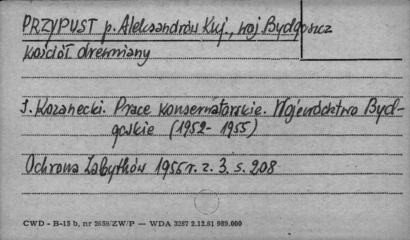 PRZYPUST p. Aleksandrów Kuj., woj Bydgoszcz
kościół drewniany
J. Kozanecki. Prace konserwatorskie. Województwo Byd-
goskie (1952-1955)
Ochrona Zabytków 1956 r. z. 3, s. 208
CWD - B-15 b, nr 2659/ZW/P — WDA 3287 2.12.61 989.000